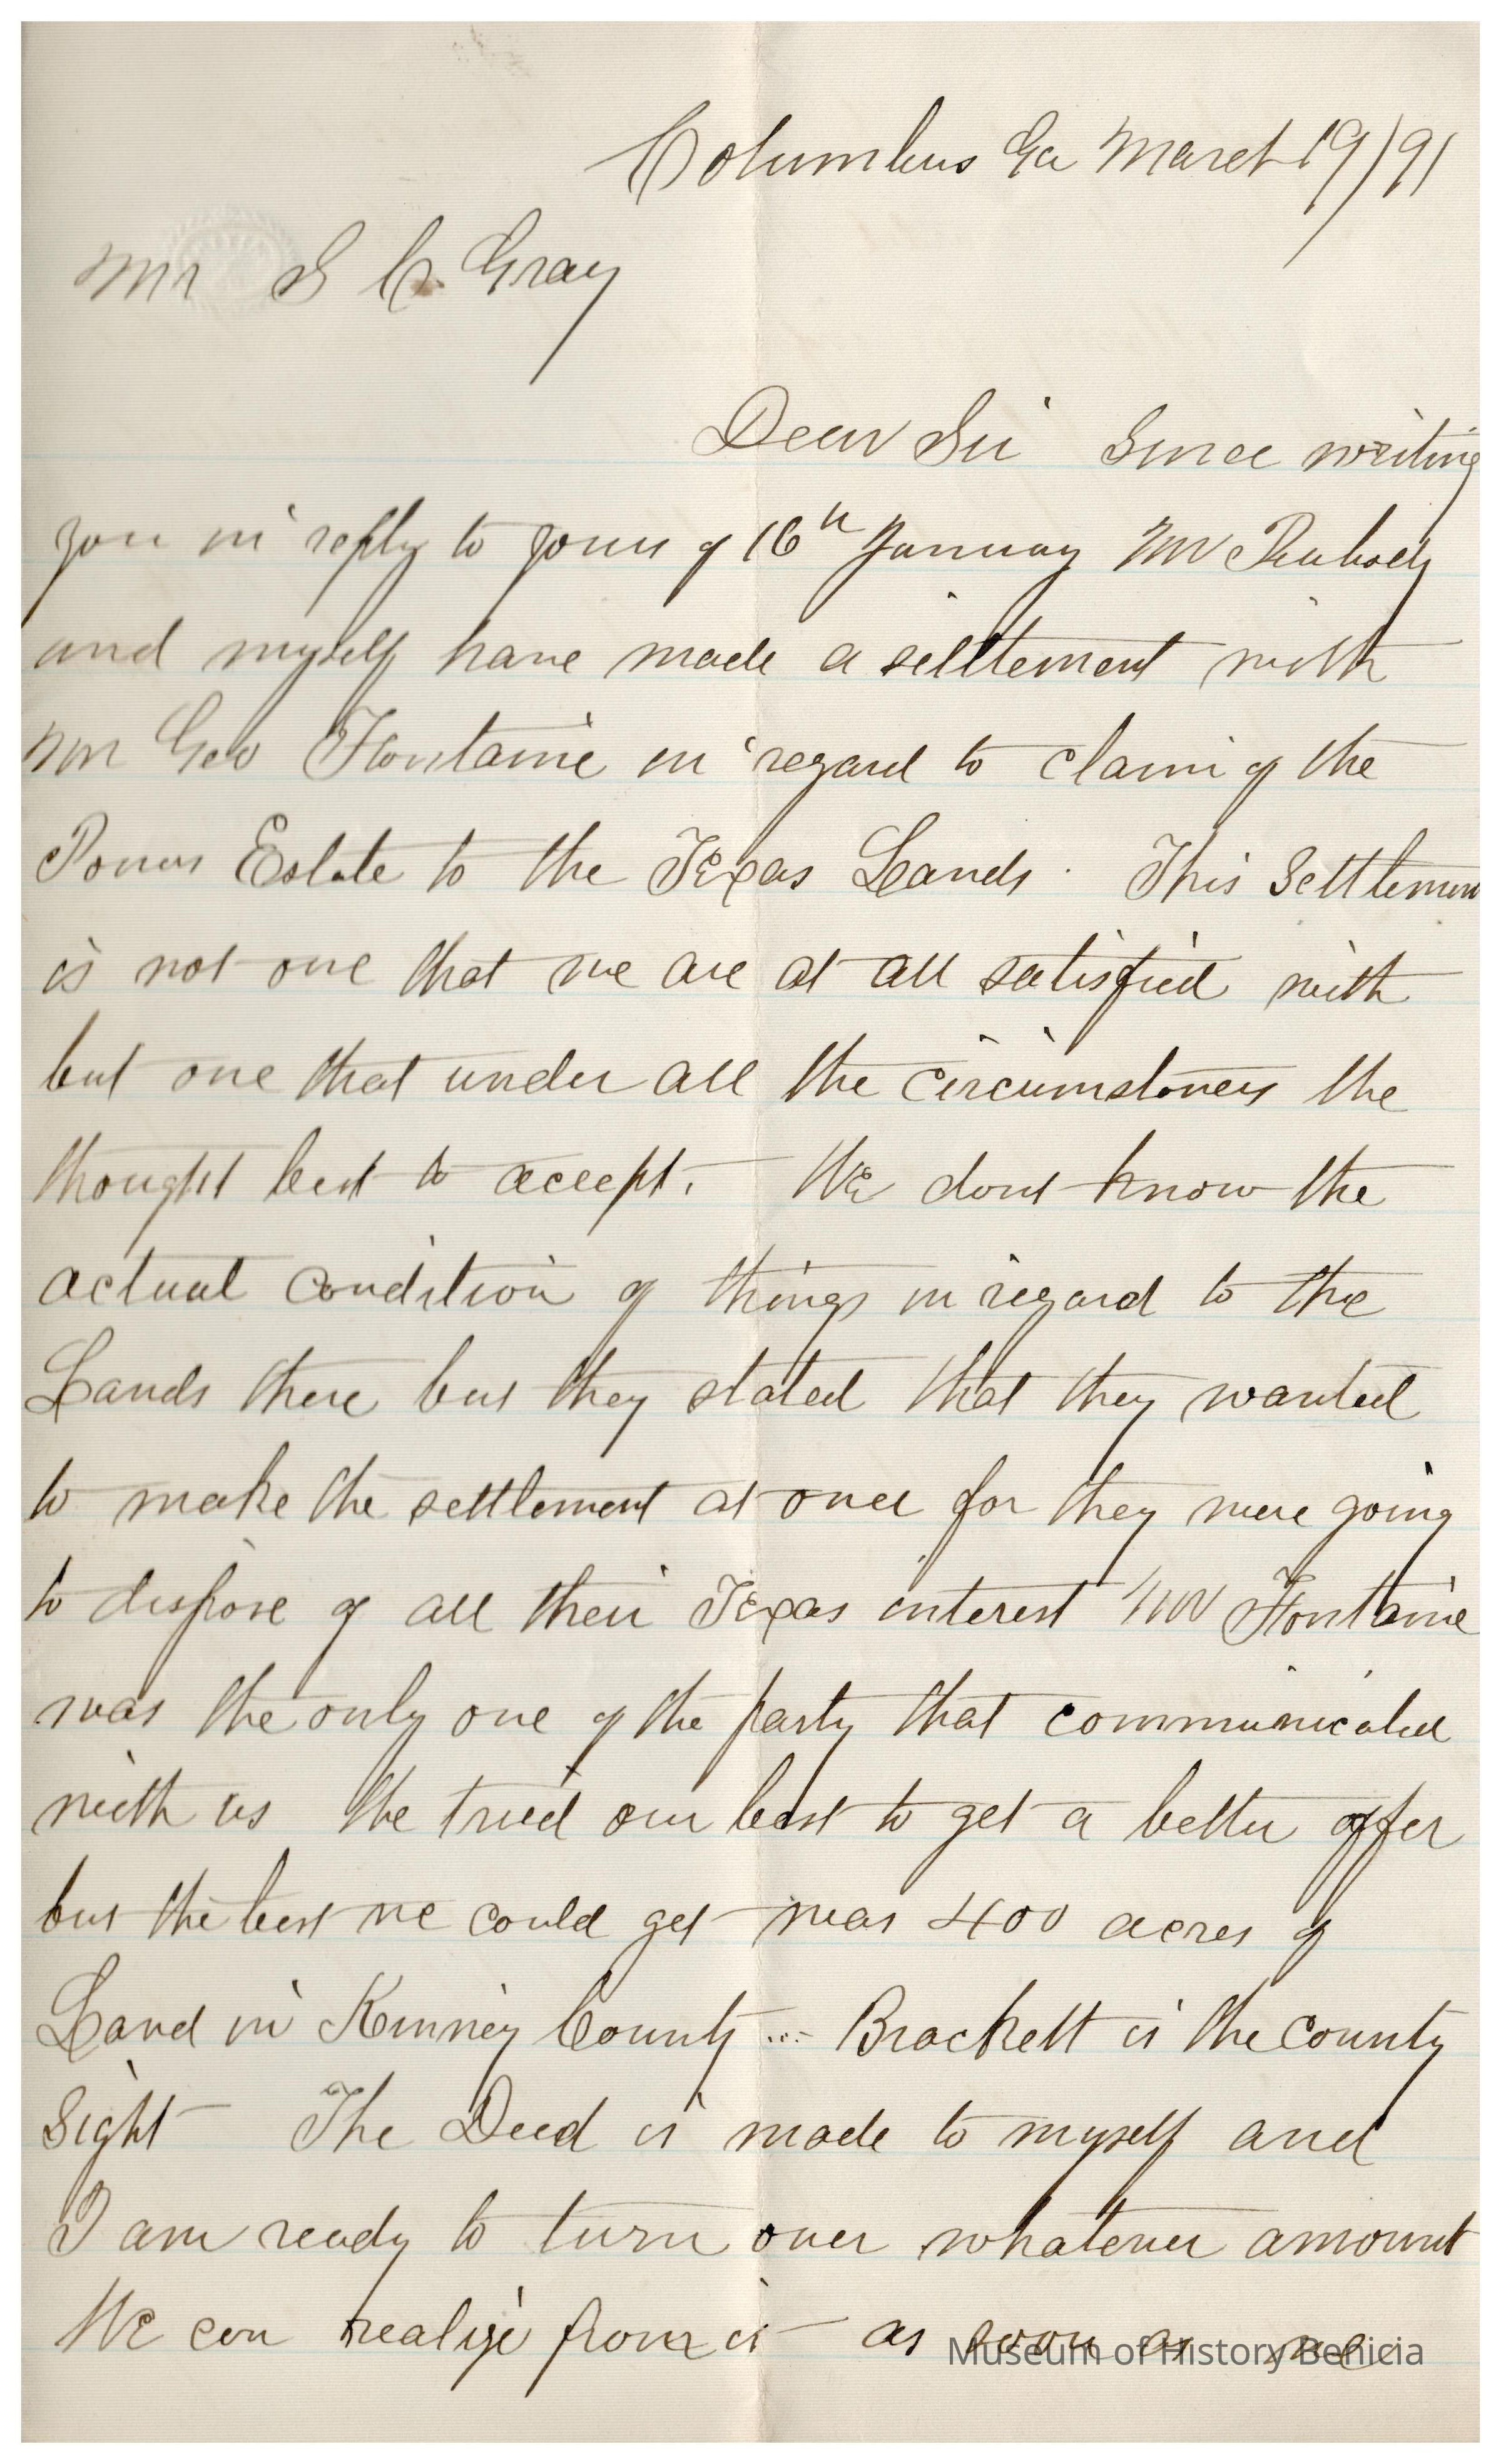 Columbus Ga March 19/91
Mr S C. Gray
Dear Sir Since writing
you in reply to yours of 16th January Mr Peabody
and myself have made a selttement with
Mr Geo Fontaine in regard to claim of the
Estate to the Texas Lands. This Settlement
is not one that we are at all satisfied with
but one that under all the circumstances the
thought best to accept. We dont know the
actual condition of things in regard to the
Lands there but they stated that they wanted
to make the settlement at once for they were going
to dispose of all their Texas interest Mr Fontaine
was the only one of the party that communicated
with us We tried our best to get a better offer
but the best we could get was 400 acres of
Land in Kinney County ... Brackett is the County
Sight The Deed is made to myself and
I am ready to turn over whatever amount
We can realize from it as soon as we
Museum of History Benicia